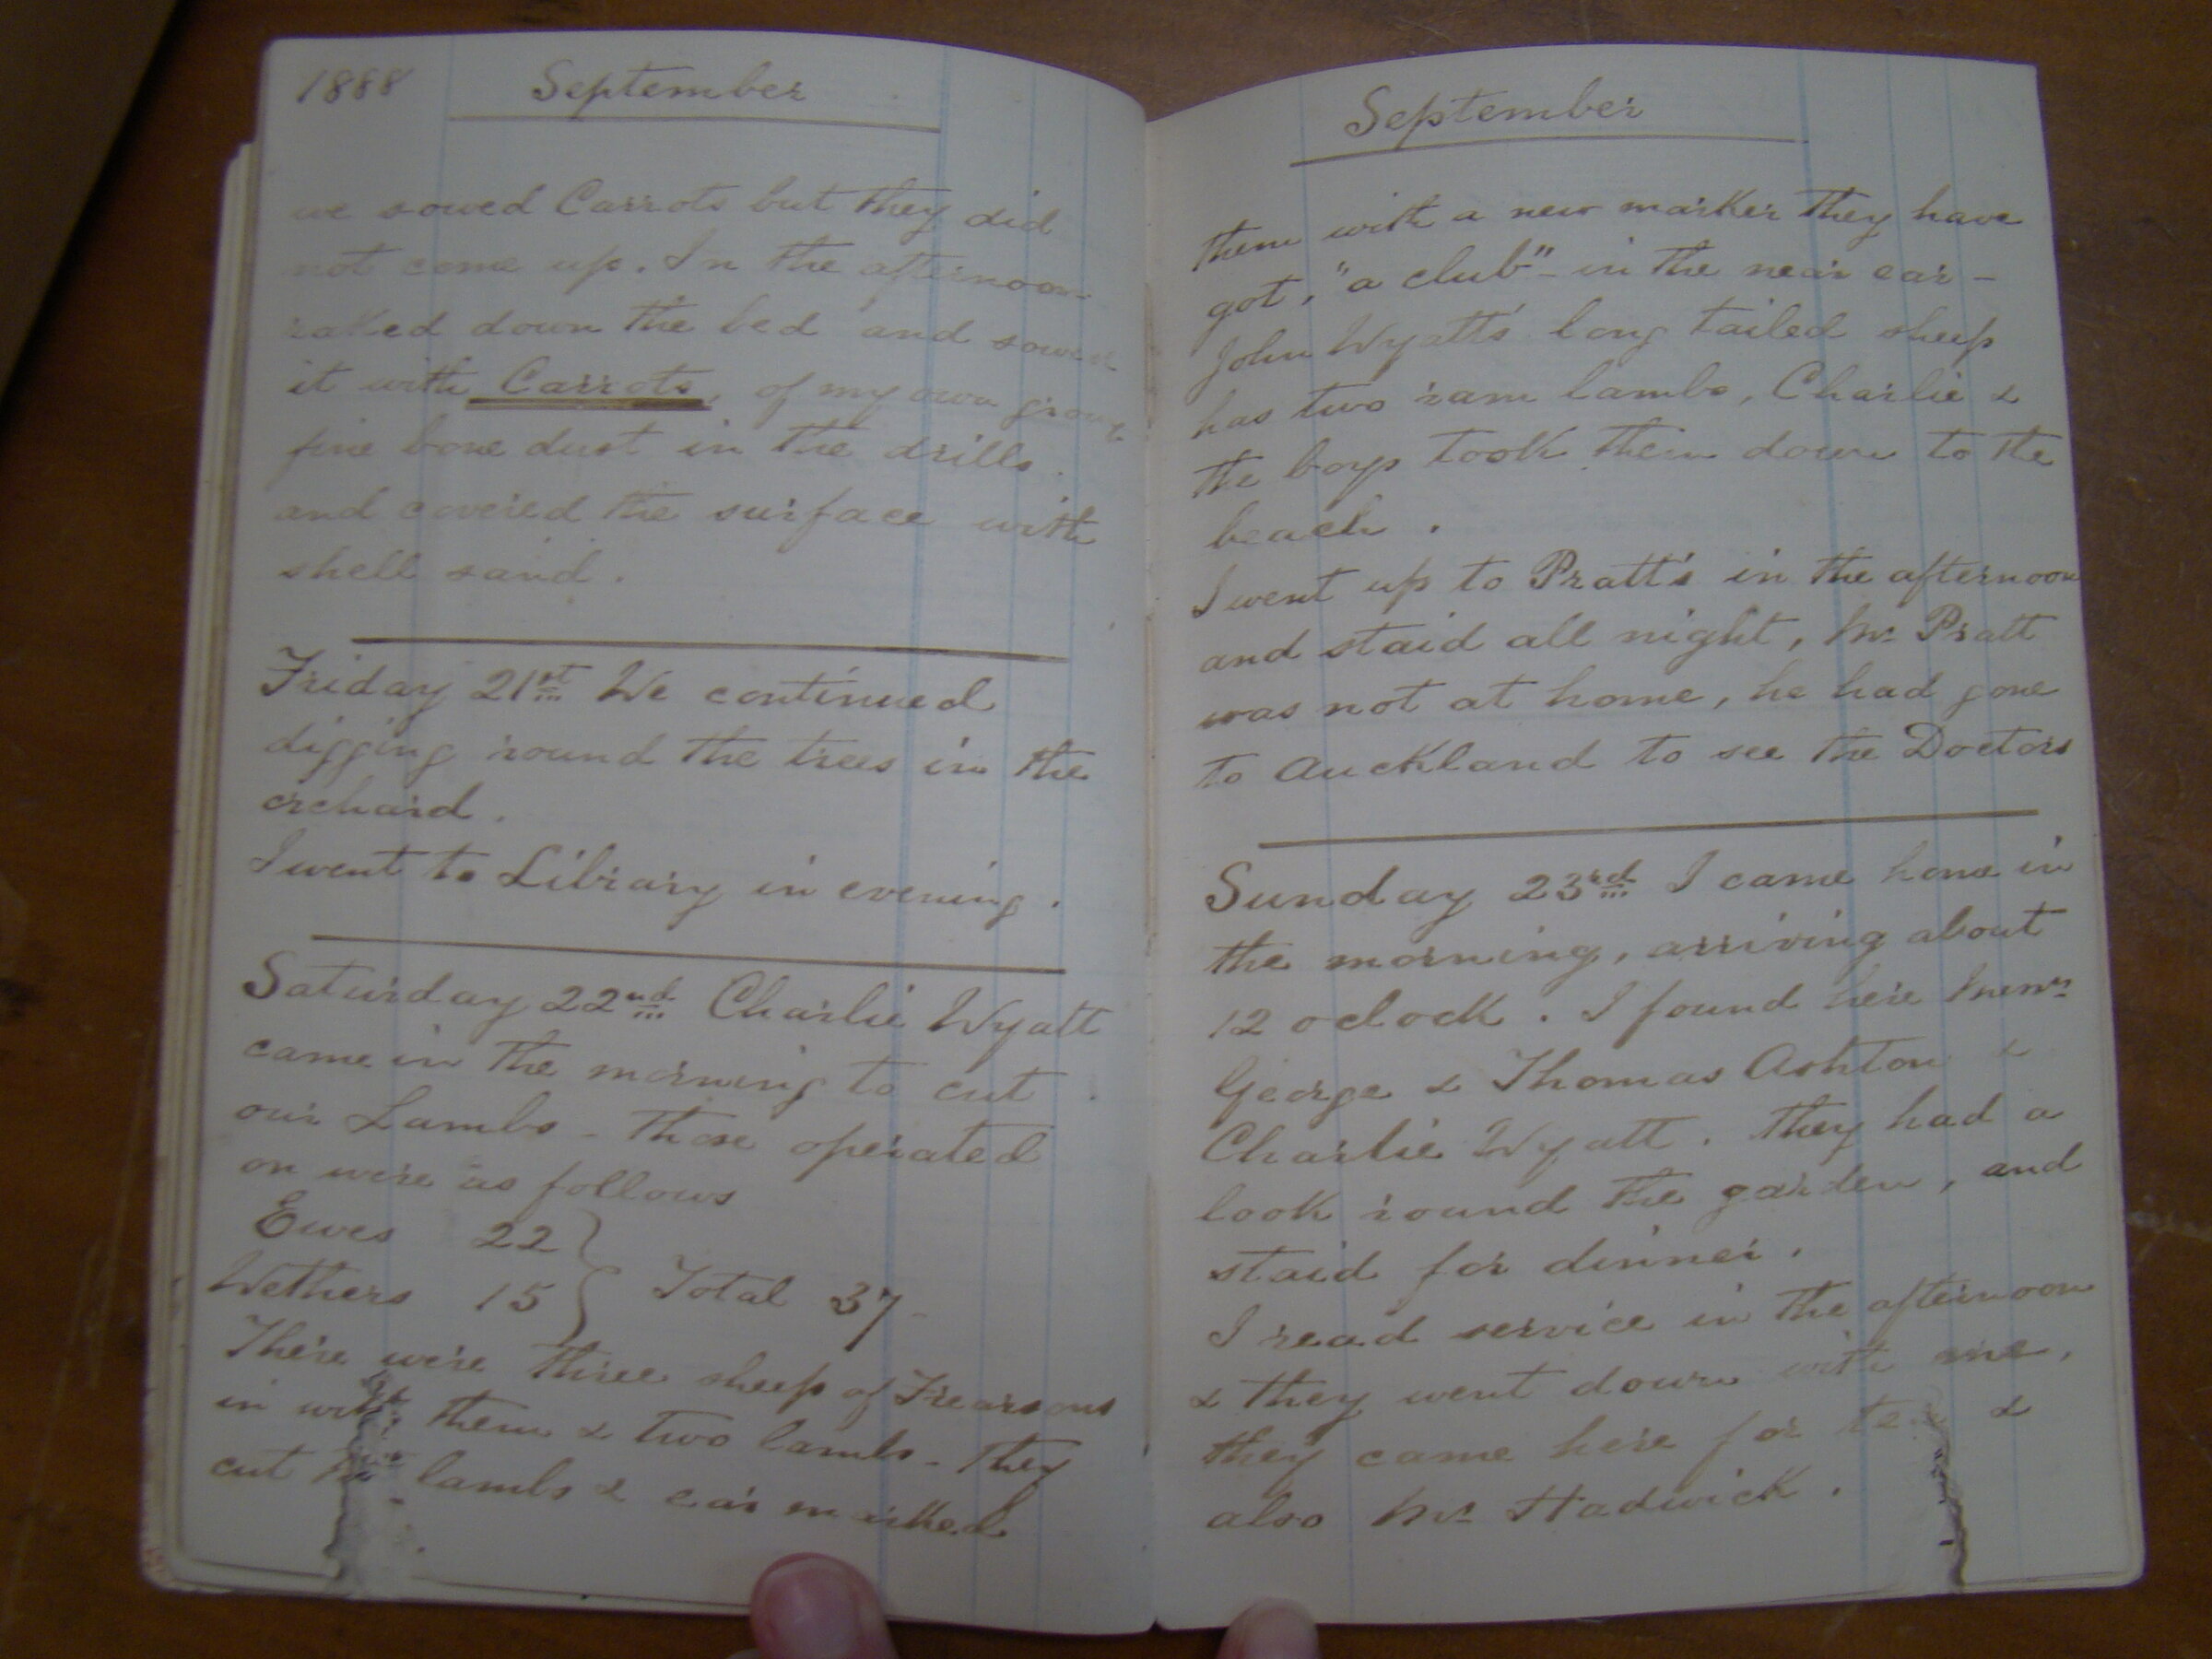 1888 September
we sowed Carrots but they did
not come up. In the afternoon
raked down the bed and sowed
it with Carrots, of my own growth
fine bone dust in the drills.
and covered the surface with
shell sand.
Friday 21st We continued
digging round the trees in the
orchard.
I went to Library in evening.
Saturday 22nd Charlie Wyatt
came in the morning to cut
our Lambs - Those operated
on were as follows
Ewes 22
Wethers 15 } Total 37 -
There were three sheep of Frearsons
in with them & two lambs - They
cut lambs & ear marked
September
them with a new marker they have
got, "a club" - in the near ear -
John Wyatt's long tailed sheep
has two ram lambs, Charlie &
the boys took them down to the
beach.
I went up to Pratt's in the afternoon
and staid all night, Mr Pratt
was not at home, he had gone
to Auckland to see the Doctors
Sunday 23rd I came home in
the morning, arriving about
12 oclock. I found here
George & Thomas Ashton &
Charlie Wyatt. They had a
look round the garden, and
staid for dinner.
I read service in the afternoon
& they went down with me,
they came here for tea &
also Mr Hadwick.